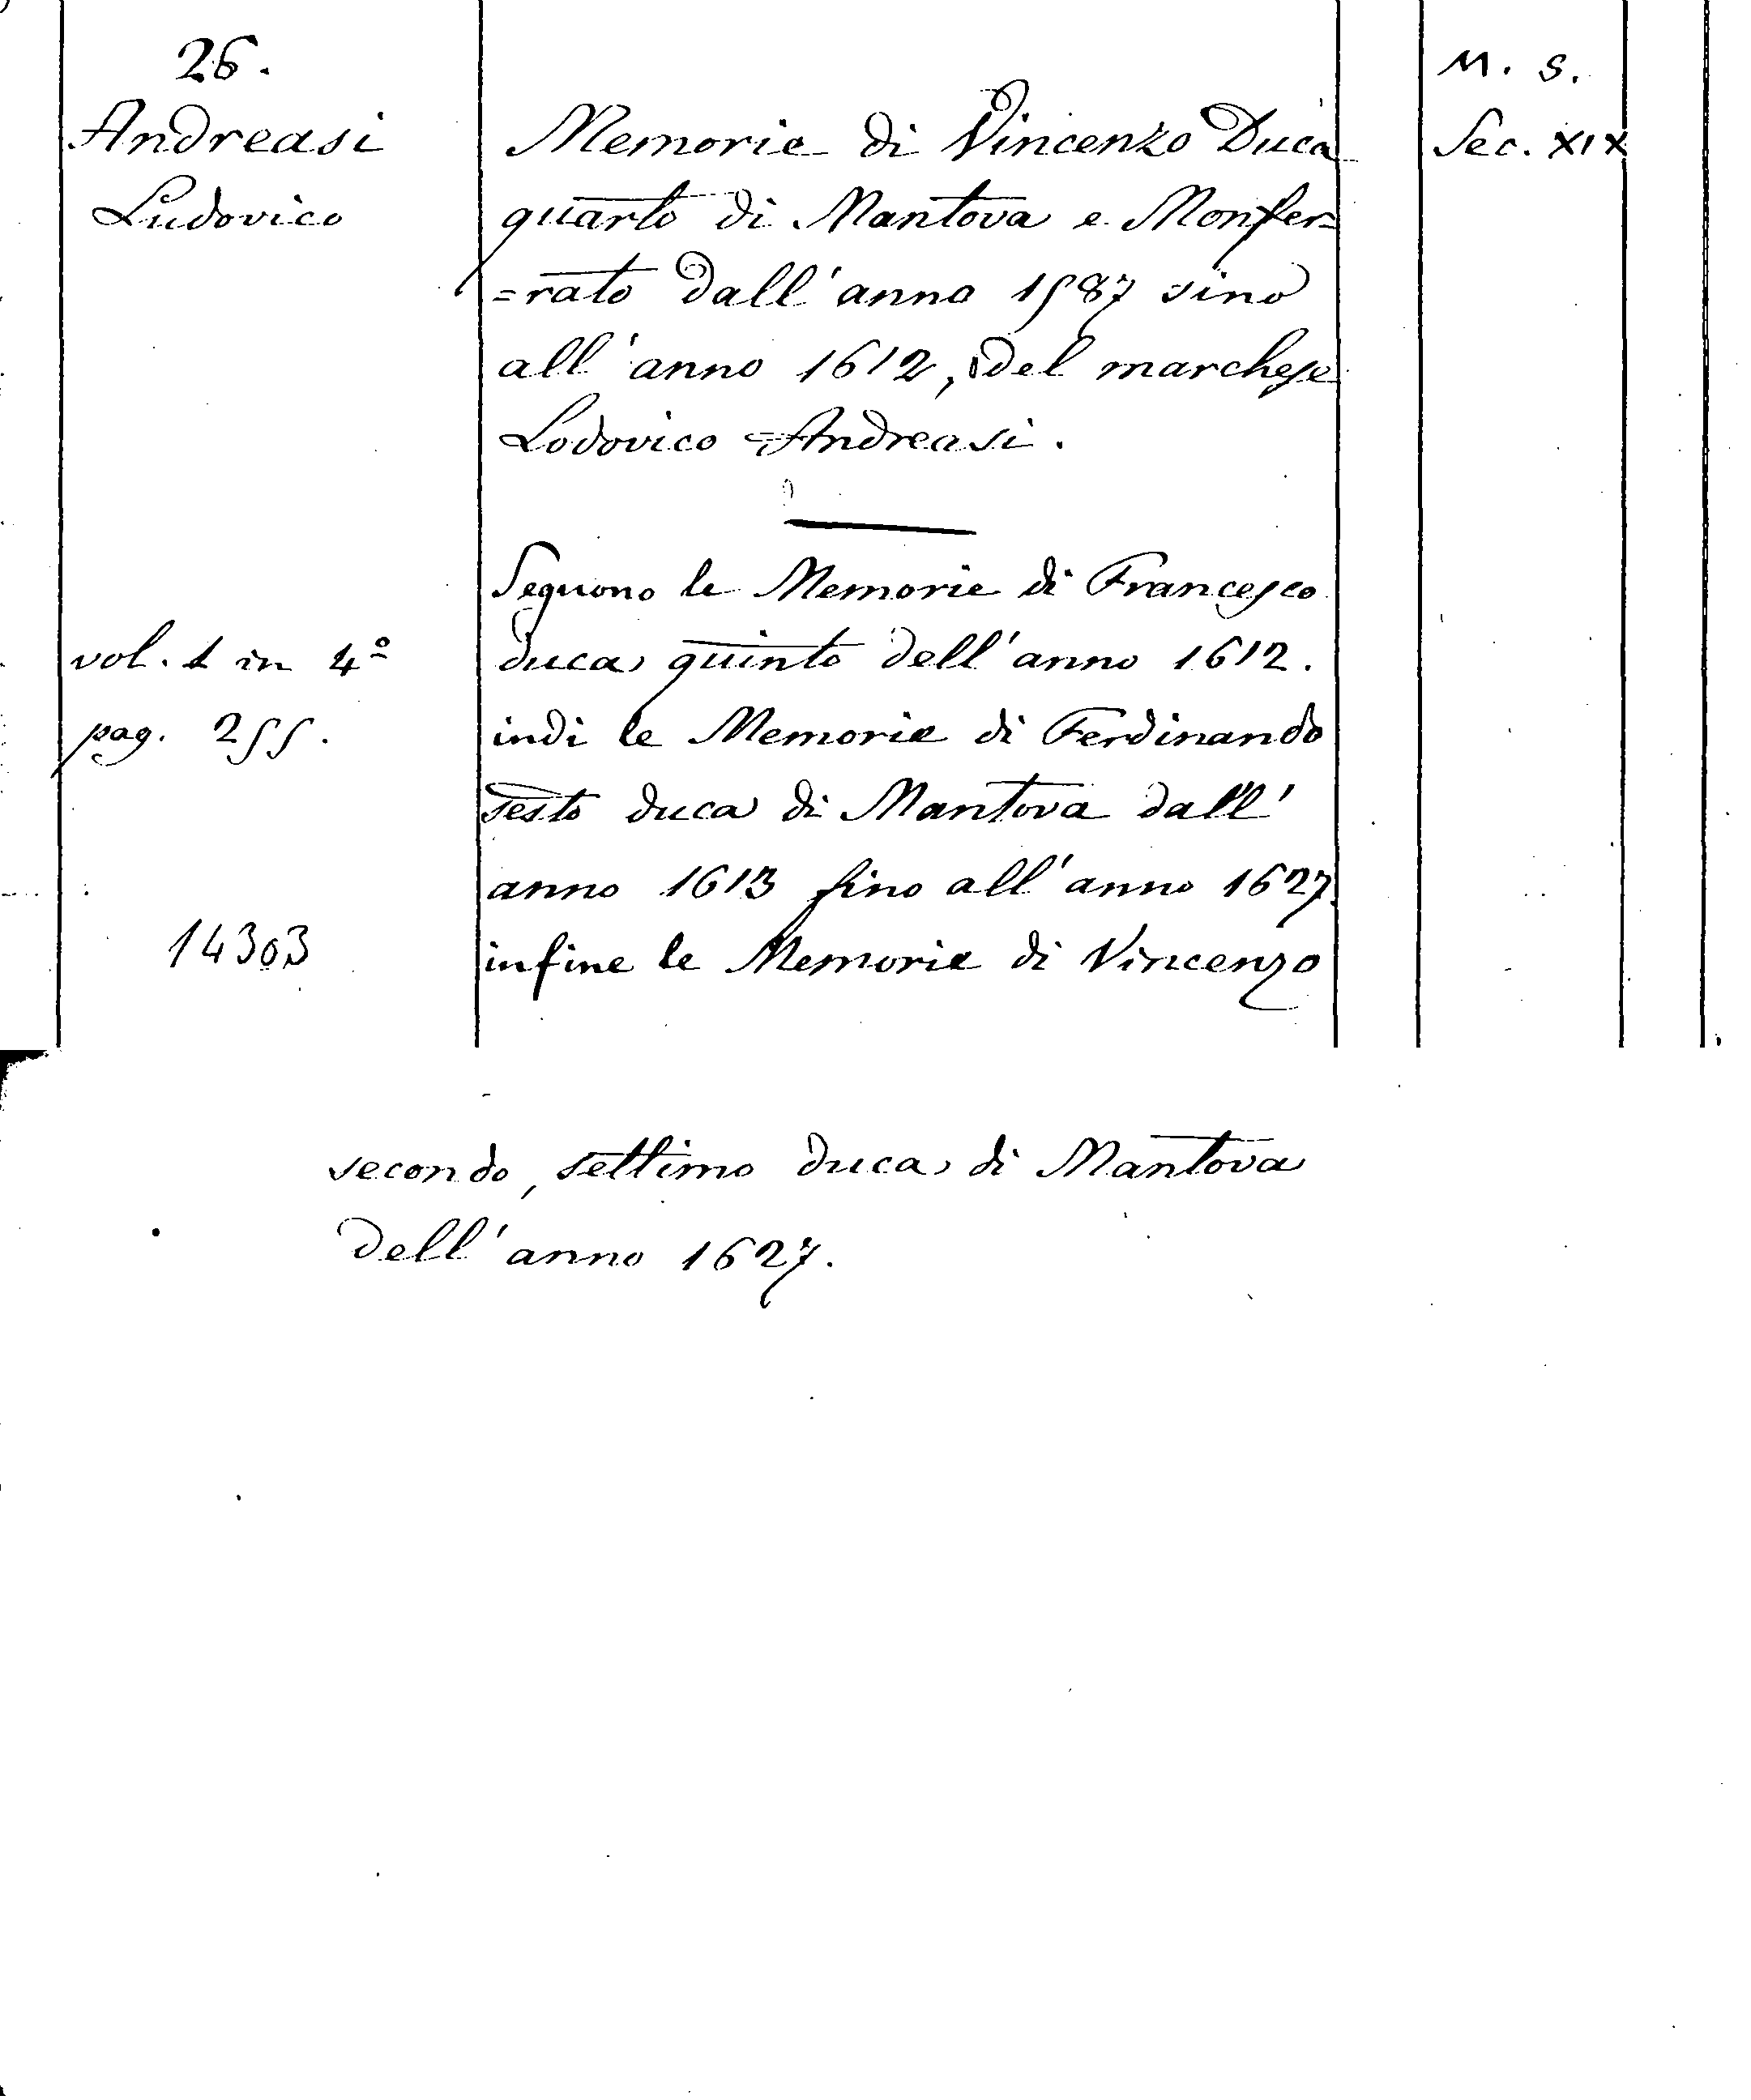 26.
Andreasi
Ludovico
vol. 1 in 4º
pag. 255.
14303
Memorie di Vincenzo Duca
quarto di Mantova e Monfer=
=rato dall'anno 1587 sino
all'anno 1612, del marchese
Lodovico Andreasi.
Seguono le Memorie di Francesco
duca quinto dell'anno 1612.
indi le Memorie di Ferdinando
sesto duca di Mantova dall'
anno 1613 fino all'anno 1627.
infine le Memorie di Vincenzo
M. S.
Sec. XIX
secondo, settimo duca di Mantova
dell'anno 1627.